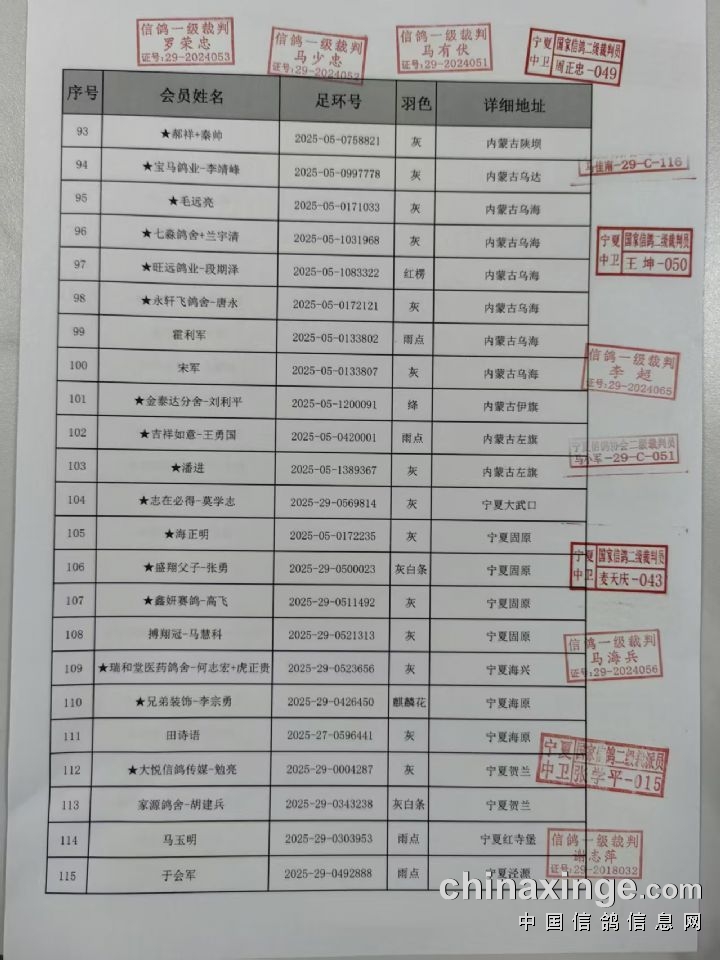 信鸽一级裁判
罗荣忠
证号:29-2024053
信鸽一级裁判
马少忠
证号:29-2024052
信鸽一级裁判
马有伏
证号:29-2024051
宁夏 国家信鸽二级裁判员
中卫 周正忠-049
序号 会员姓名 足环号 羽色 详细地址
93 ★郝祥+秦帅 2025-05-0758821 灰 内蒙古陕坝
94 ★宝马鸽业-李靖峰 2025-05-0997778 灰 内蒙古乌达
马佳南-29-C-116
95 ★毛远亮 2025-05-0171033 灰 内蒙古乌海
96 ★七淼鸽舍+兰宇清 2025-05-1031968 灰 内蒙古乌海
宁夏 国家信鸽二级裁判员
中卫 王坤-050
97 ★旺远鸽业-段期泽 2025-05-1083322 红楞 内蒙古乌海
98 ★永轩飞鸽舍-唐永 2025-05-0172121 灰 内蒙古乌海
99 霍利军 2025-05-0133802 雨点 内蒙古乌海
100 宋军 2025-05-0133807 灰 内蒙古乌海
信鸽一级裁判
李超
证号:29-2024065
101 ★金泰达分舍-刘利平 2025-05-1200091 绛 内蒙古伊旗
102 ★吉祥如意-王勇国 2025-05-0420001 雨点 内蒙古左旗
宁夏信鸽协会二级裁判员
马小军-29-C-051
103 ★潘进 2025-05-1389367 灰 内蒙古左旗
104 ★志在必得-莫学志 2025-29-0569814 灰 宁夏大武口
105 ★海正明 2025-05-0172235 灰 宁夏固原
106 ★盛翔父子-张勇 2025-29-0500023 灰白条 宁夏固原
宁夏 国家信鸽二级裁判员
中卫 麦天庆-043
107 ★鑫妍赛鸽-高飞 2025-29-0511492 灰 宁夏固原
108 搏翔冠-马慧科 2025-29-0521313 灰 宁夏固原
信鸽一级裁判
马海兵
证号:29-2024056
109 ★瑞和堂医药鸽舍-何志宏+虎正贵 2025-29-0523656 灰 宁夏海兴
110 ★兄弟装饰-李宗勇 2025-29-0426450 麒麟花 宁夏海原
111 田诗语 2025-27-0596441 灰 宁夏海原
112 ★大悦信鸽传媒-勉亮 2025-29-0004287 灰 宁夏贺兰
宁夏 国家信鸽二级裁判员
中卫 张学平-015
113 家源鸽舍-胡建兵 2025-29-0343238 灰白条 宁夏贺兰
114 马玉明 2025-29-0303953 雨点 宁夏红寺堡
信鸽一级裁判
谢志萍
证号:29-2018032
115 于会军 2025-29-0492888 雨点 宁夏泾源
chinaxinge.com
中国信鸽信息网